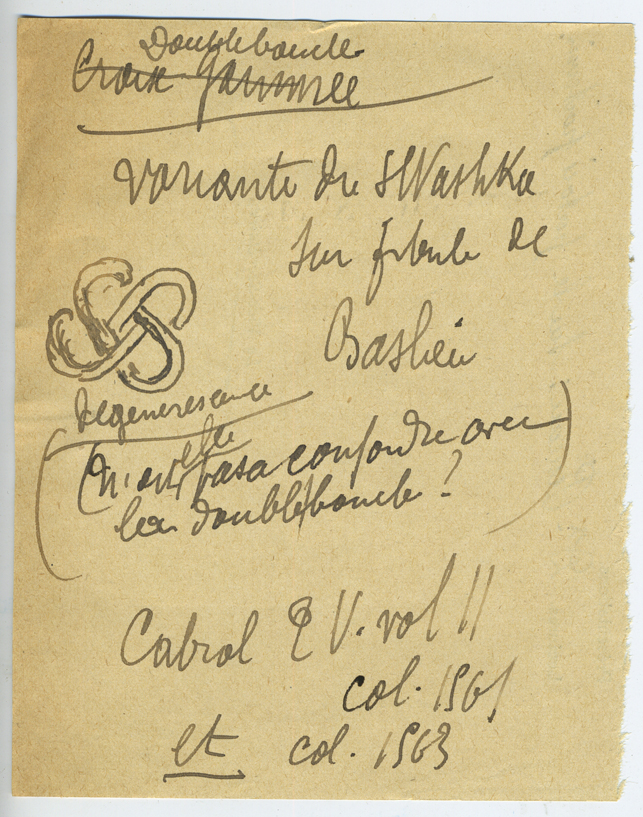 Double boucle
Croix gammée
variante du SWashka
sur fibule de
Baslieu
Dégénérescence
(N'est elle pas a confondre avec
les double boucle ?
Cabrol 2 V. vol II
col. 1561
et col. 1563